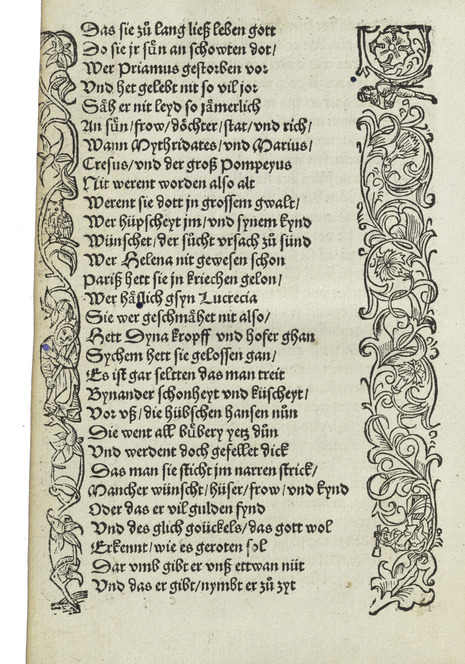 Das sie zů lang ließ leben gott
Do sie jr sün an schowten dot/
Wer Priamus gestorben vor
Vnd het gelebt nit so vil jor
Säh er nit leyd so jämerlich
An sün/frow/döchter/stat/vnd rich/
Wann Mythridates/vnd Marius/
Cresus/vnd der groß Pompeyus
Nit werent worden also alt
Werent sie dott in grossem gwalt/
Wer hüpscheyt jm/vnd synem kynd
Wünschet/der sücht vrsach zů sünd
Wer Helena nit gewesen schon
Pariß hett sie in kriechen gelon/
Wer häßlich gsyn Lucrecia
Sie wer geschmähet nit also/
Hett Dyna kropff vnd hofer ghan
Sychem hett sie gelossen gan/
Es ist gar seltten das man treit
Bynander schonheyt vnd küscheyt/
Vor vß/die hübschen hansen nůn
Die went all bůbery yetz důn
Vnd werdent doch gefellet dick
Das man sie sticht jm narren strick/
Mancher wünscht/hüser/frow/vnd kynd
Oder das er vil gulden fynd
Vnd des glich goückels/das gott wol
Erkennt/wie es geroten sol
Dar vmb gibt er vnß ettwan nüt
Vnd das er gibt/nymbt er zů zyt